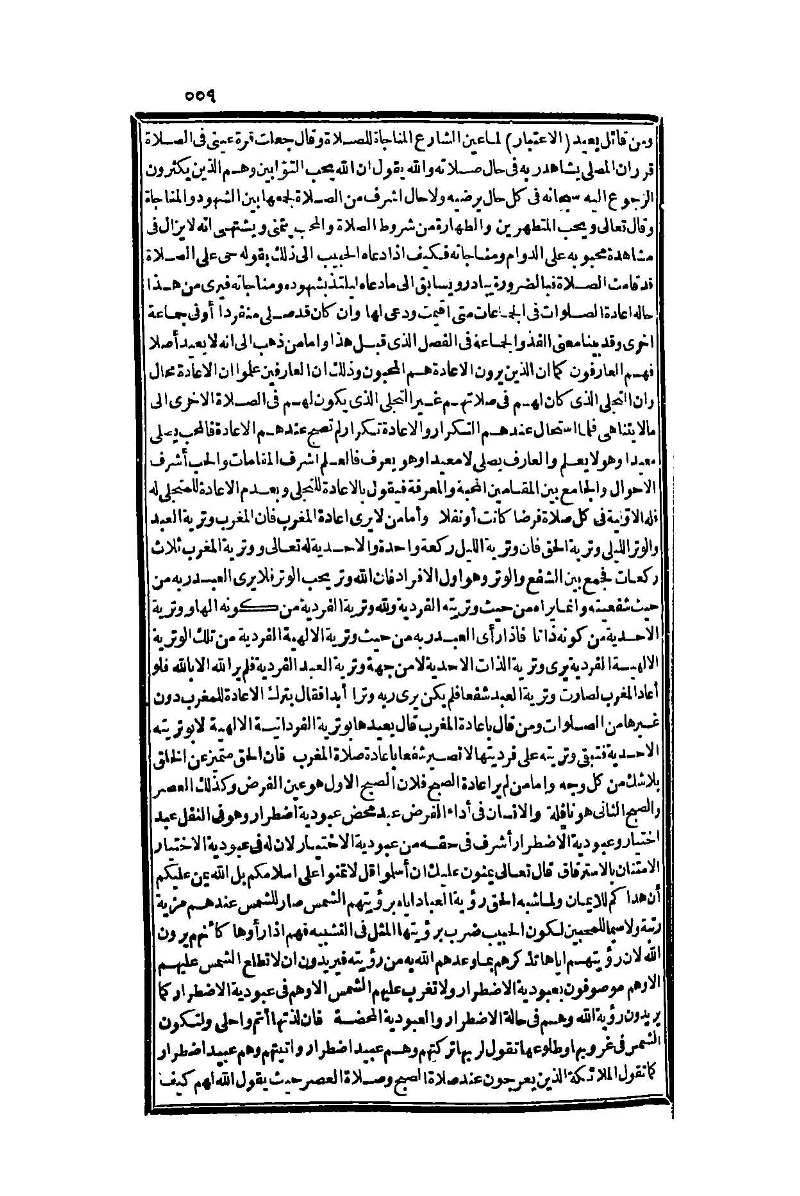 ٥٥٩
ومن قائل يعيد (الاعتبار) لما عين الشارع المناجاة للصلاة وقال جعلت قرة عيني فى الصلاة
قرر ان المصلى يشاهد ربه فى حال صلاته والله يقول ان الله يحب التوابين وهم الذين يكثرون
الرجوع اليه سبحانه فى كل حال يرضيه ولا حال اشرف من الصلاة لجمعها بين الشهود والمناجاة
وقال تعالى ويحب المتطهرين والطهارة من شروط الصلاة والمحب يتمنى ويشتهى انه لا يزال فى
مشاهدة محبوبه على الدوام ومناجاته فكيف اذا دعاه الحبيب الى ذلك بقوله حى على الصلاة
قد قامت الصلاة فبالضرورة يبادر ويسابق الى ما دعاه ليلتذ بشهوده ومناجاته فيرى من هذا
حاله اعادة الصلوات فى الجماعات متى اقيمت ودعى لها وان كان قد صلى منفردا أو فى جماعة
اخرى وقد بينا معنى الفذ والجماعة فى الفصل الذى قبل هذا واما من ذهب الى انه لا يعيد أصلا
فهم العارفون كما ان الذين يرون الاعادة هم المحبون وذلك ان العارفين علموا ان الاعادة محال
وان التجلى الذى كان لهم فى صلاتهم غير التجلى الذى يكون لهم فى الصلاة الاخرى الى
مالا يتناهى فلما استحال عندهم التكرار والاعادة تكرار لم تصح عندهم الاعادة فالمحب يصلى
معيدا وهو لا يعلم والعارف يصلى لا معيدا وهو يعرف فالعلم اشرف المقامات والحب أشرف
الاحوال والجامع بين المقامين المحبة والمعرفة فيقول بالاعادة للتجلى وبعدم الاعادة للمتجلى له
فله الاولية فى كل صلاة فرضا كانت أو نفلا وأما من لا يرى اعادة المغرب فان المغرب وترية العبد
والوتر الليلى وترية الحق فان وترية الليل ركعة واحدة والاحدية له تعالى ووترية المغرب ثلاث
ركعات فجمع بين الشفع والوتر وهو اول الافراد فان الله وتر يحب الوتر فلا يرى العبد ربه من
حيث شفعيته وانما يراه من حيث وتريته الفردية ولله وترية الفردية من كونه الها ووترية
الاحدية من كونه ذاتا فاذا رأى العبد ربه من حيث وترية الالهية الفردية من تلك الوترية
الالهية الفردية يرى وترية الذات الاحدية لا من جهة وترية العبد الفردية فلم ير الله الا بالله فلو
أعاد المغرب لصارت وترية العبد شفعا فلم يكن يرى ربه وترا أبدا فقال بترك الاعادة للمغرب دون
غيرها من الصلوات ومن قال باعادة المغرب قال يعيدها بوترية الفردانية الالهية لا بوتريته
الاحدية فتبقى وتريته على فرديتها لا تصير شفعا باعادة صلاة المغرب فان الحق متميز عن الخلق
بلا شك من كل وجه واما من لم ير اعادة الصبح فلان الصبح الاول هو عين الفرض وكذلك العصر
والصبح الثانى هو نافلة والانسان فى أداء الفرض عبد محض عبودية اضطرار وهو فى النفل عبد
اختيار وعبودية الاضطرار أشرف فى حقه من عبودية الاختيار لان له فى عبودية الاختيار
الامتنان بالاسترقاق قال تعالى يمنون عليك ان أسلموا قل لا تمنوا على اسلامكم بل الله يمن عليكم
أن هداكم للايمان ولما شبه الحق رؤية العباد اياه برؤيتهم الشمس صار للشمس عندهم مزية
رتبة ولا سيما للمحبين لكون الحبيب ضرب برؤيتها المثل فى التشبيه فهم اذا رأوها كأنهم يرون
الله لان رؤيتهم اياها تذكرهم بما وعدهم الله به من رؤيته فيريدون ان لا تطلع الشمس عليهم
الا وهم موصوفون بعبودية الاضطرار ولا تغرب عليهم الشمس الا وهم فى عبودية الاضطرار كما
يريدون رؤية الله وهم فى حالة الاضطرار والعبودية المحضة فان لذتها أتم واحلى ولتكون
الشمس فى غروبها وطلوعها تقول لربها تركتهم وهم عبيد اضطرار واتيتهم وهم عبيد اضطرار
كما تقول الملائكة الذين يعرجون عند صلاة الصبح وصلاة العصر حيث يقول الله لهم كيف